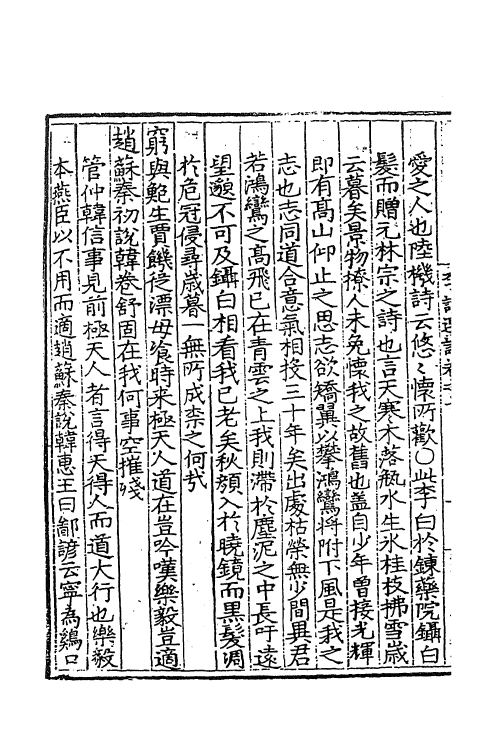 愛之人也陸機詩云悠〻懷所歡○此李白於鍊藥院鑷白
髮而贈元林宗之詩也言天寒木落瓶水生氷桂枝拂雪歲
云暮矣景物撩人未免懷我之故舊也盖自少年曾接光輝
即有髙山仰止之思志欲矯翼以攀鴻鸞將附下風是我之
志也志同道合意氣相投三十年矣出處枯榮無少間異君
若鴻鸞之髙飛已在青雲之上我則滯於塵泥之中長吁遠
望邈不可及鑷白相看我已老矣秋顔入於曉鏡而黒髮凋
於危冠侵尋歲暮一無所成柰之何㢤
窮與鮑生賈饑從漂母飡時来極天人道在豈吟嘆樂毅豈適
趙蘇秦初說韓卷舒固在我何事空摧殘
管仲韓信事見前極天人者言得天得人而道大行也樂毅
本燕臣以不用而適趙蘇秦說韓惠王曰鄙諺云寧為鷄口